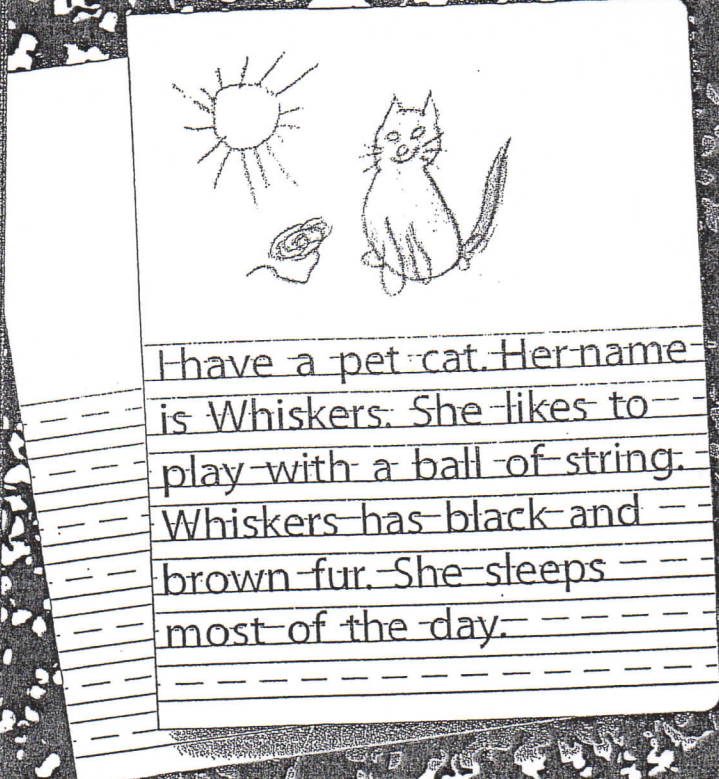 I have a pet cat. Her name
is Whiskers. She likes to
play with a ball of string.
Whiskers has black and
brown fur. She sleeps
most of the day.